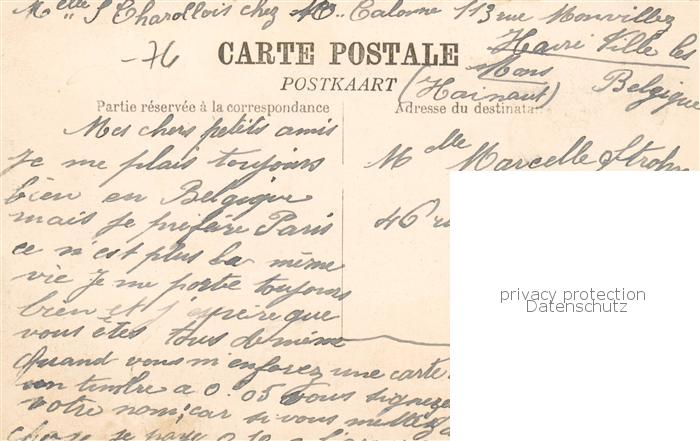 Melle S Charollois chez Mr. Calonne 113 rue Monvillez
Havré Ville les
Mons
(Hainaut) Belgique
-76
CARTE POSTALE
POSTKAART
Partie réservée à la correspondance
Adresse du destinata
Mes chers petits amis
Je me plais toujours
bien en Belgique
mais je préfère Paris
ce n'est plus la même
vie Je me porte toujours
bien et j'espère que
vous êtes tous de même
Quand vous m'enforez une carte
un timbre a 0.05 vous signez
votre nom; car si vous mettez
chose je paye
Melle Marcelle Strohm
46 ru
privacy protection
Datenschutz